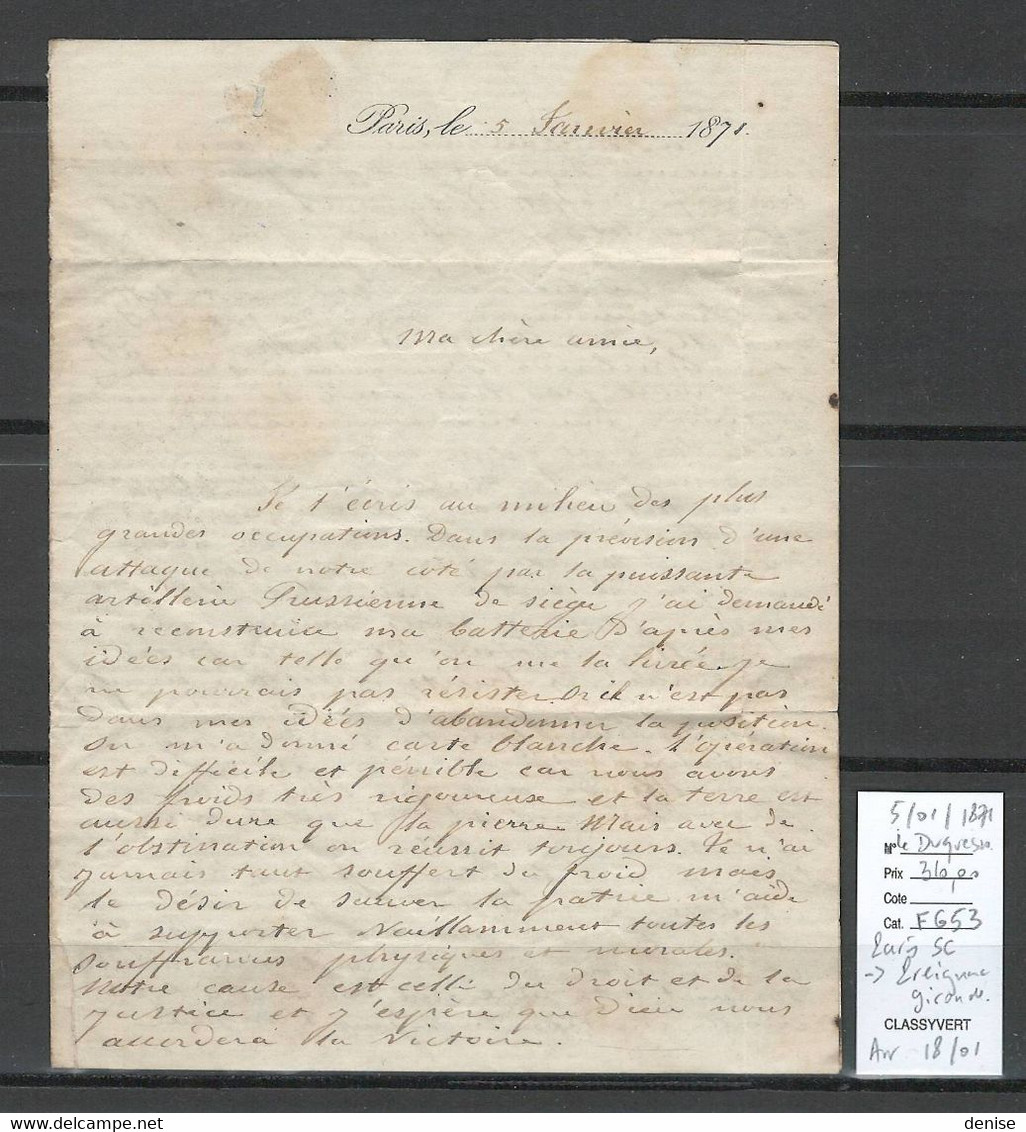 Paris, le 5 Janvier 1871.
Ma chère amie,
Je t'écris au milieu des plus
grandes occupations. Dans la prévision d'une
attaque de notre côté par la puissante
artillerie Prussienne de siège j'ai demandé
à reconstruire ma batterie d'après mes
idées car telle qu'on me la livrée je
ne pourrais pas résister. Or il n'est pas
dans mes idées d'abandonner la position.
On m'a donné carte blanche. L'opération
est difficile et pénible car nous avons
des froids très rigoureuse et la terre est
aussi dure que la pierre. Mais avec de
l'obstination on réussit toujours. Je n'ai
jamais tant souffert du froid mais
le désir de sauver la patrie m'aide
à supporter vaillamment toutes les
souffrances physiques et morales.
Notre cause est celle du droit et de la
justice et j'espère que Dieu nous
accordera la victoire.
5/01/1871
N° le Duquesne
Prix
Cote
Cat. FG53
Paris SC
-> Preignac
Gironde.
CLASSYVERT
Arr 18/01
denise